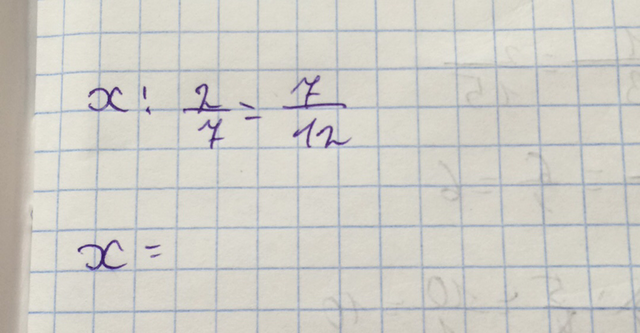 x : 2/7 = 7/12
x =